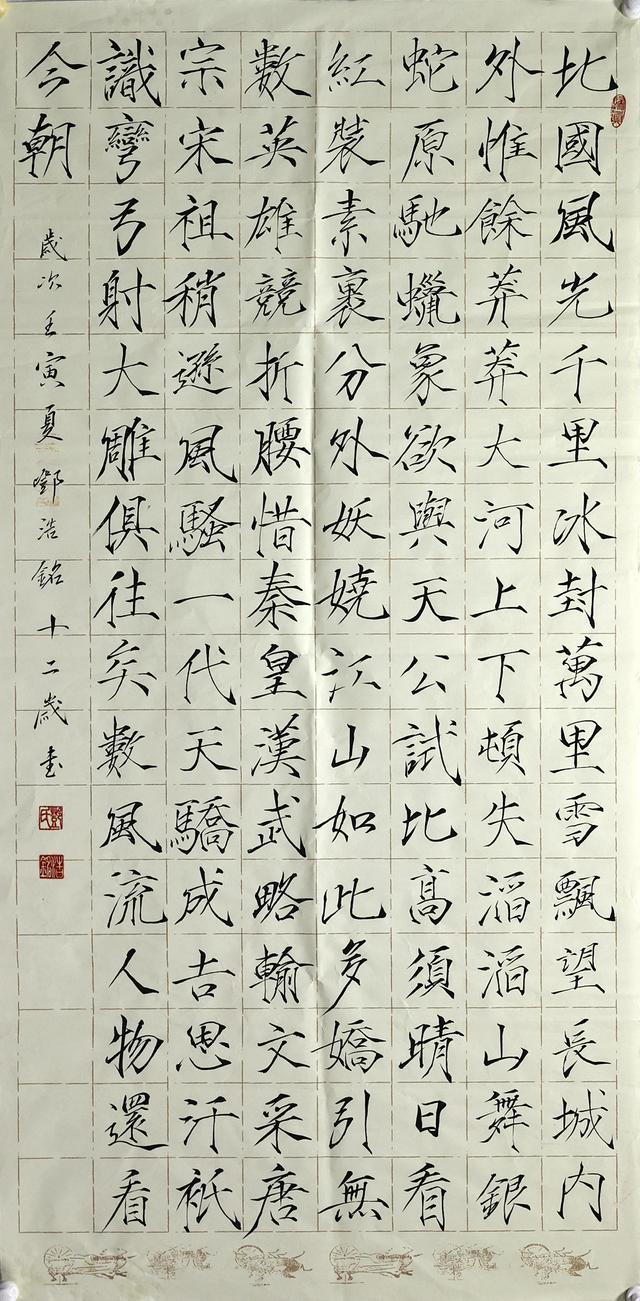 北國風光千里冰封萬里雪飄望長城内
外惟餘莽莽大河上下頓失滔滔山舞銀
蛇原馳蠟象欲與天公試比高須晴日看
紅裝素裹分外妖嬈江山如此多嬌引無
數英雄競折腰惜秦皇漢武略輸文采唐
宗宋祖稍遜風騷一代天驕成吉思汗衹
識彎弓射大雕俱往矣數風流人物還看
今朝
歲次壬寅夏鄧浩銘十二歲書
鄧氏
浩銘